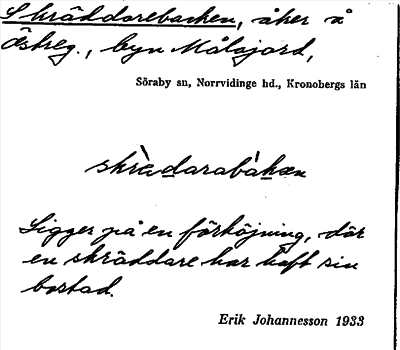 Skräddarebacken, åker å
Östreg., byn Målajord,
Söraby sn, Norrvidinge hd., Kronobergs län
skrädarabàkæn
Ligger på en förhöjning, där
en skräddare har haft sin
bostad.
Erik Johannesson 1933